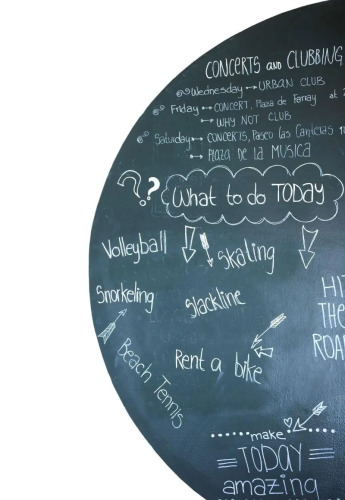 CONCERTS AND CLUBBING
Wednesday → URBAN CLUB
Friday → CONCERT, Plaza de Farray at
→ WHY NOT CLUB
Saturday → CONCERTS, Paseo las Canteras
→ PLAZA DE LA MUSICA
?? What to do TODAY
Volleyball
Skating
Snorkeling
Slackline
HIT
THE
ROA
Beach Tennis
Rent a bike
make
TODAY
amazing